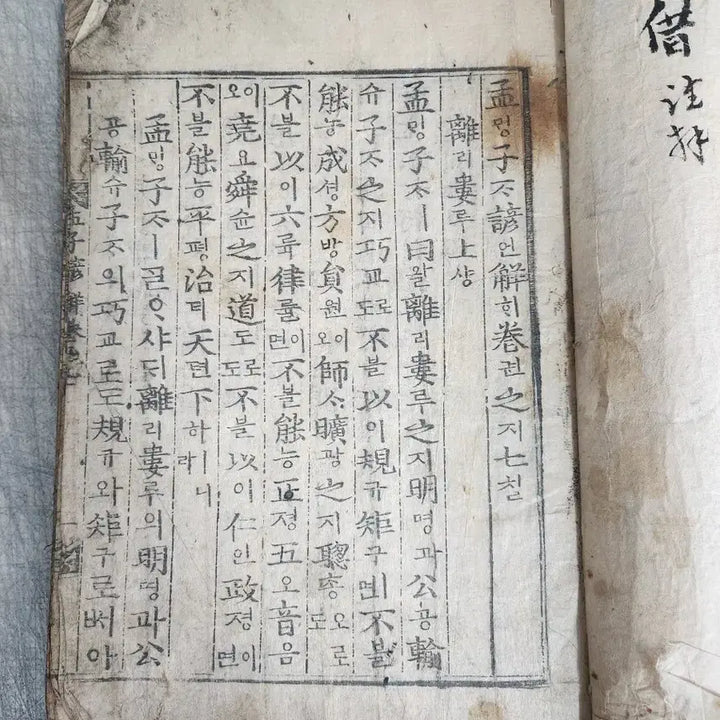 借
孟밍子ᄌᆞ諺언解ᄒᆡ卷권之지七칠
離리婁루上샹
孟밍子ᄌᆞㅣ曰왈離리婁루之지明명과公공輸
슈子ᄌᆞ之지巧교로도不블以이規규矩구ㅣ면不블
能능成셩方방貟원이오師ᄉᆞ曠광之지聰총오로도
不블以이六륙律률이면不블能능正졍五오音음
이오堯요舜슌之지道도로도不블以이仁인政졍이면
不블能능平평治티天텬下하ㅣ니라
孟밍子ᄌᆞㅣᄀᆞᆯᄋᆞ샤ᄃᆡ離리婁루의明명과公
공輸슈子ᄌᆞ의巧교로도規규와矩구로ᄡᅥ아
孟子諺解卷七